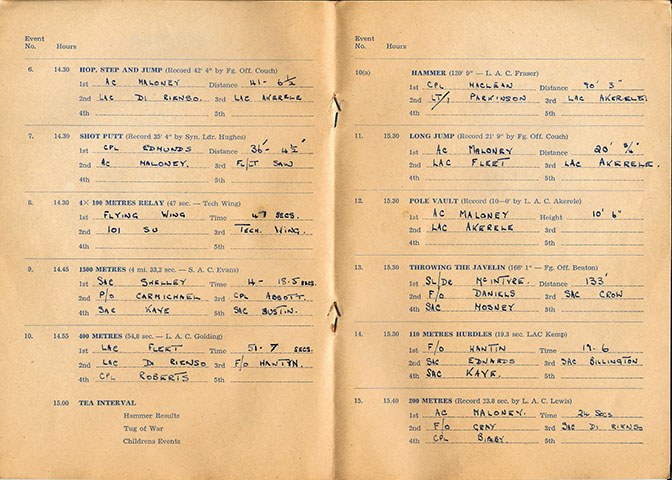 Event
No. Hours
6. 14.30 HOP, STEP AND JUMP (Record 42' 4" by Fg. Off. Couch)
1st AC MALONEY Distance 41 - 6½
2nd LAC DI RIENSO. 3rd LAC AKERELE
4th 5th
7. 14.30 SHOT PUTT (Record 35' 4" by Syn. Ldr. Hughes)
1st CPL EDMUNDS Distance 36' - 4½"
2nd AC MALONEY. 3rd FL/LT SAW
4th 5th
8. 14.30 4 X 100 METRES RELAY (47 sec. — Tech Wing)
1st FLYING WING Time 47 SECS.
2nd 101 SU 3rd TECH. WING.
4th 5th
9. 14.45 1500 METRES (4 mi. 33,2 sec. — S. A. C. Evans)
1st SAC SHELLEY Time 4 - 18.5 SECS.
2nd P/O CARMICHAEL 3rd CPL ABBOTT.
4th SAC KAYE 5th SAC BUSTIN.
10. 14.55 400 METRES (54,8 sec. — L. A. C. Golding)
1st LAC FLEET Time 51. 7 SECS.
2nd LAC DI RIENSO 3rd F/O HANTIN.
4th CPL ROBERTS 5th
15.00 TEA INTERVAL
Hammer Results
Tug of War
Childrens Events
Event
No. Hours
10(a) HAMMER (120' 9" — L. A. C. Fraser)
1st CPL MACLEAN Distance 90' 3"
2nd LT/ PARKINSON 3rd LAC AKERELE
4th 5th
11. 15.30 LONG JUMP (Record 21' 9" by Fg. Off. Couch)
1st AC MALONEY Distance 20'
2nd LAC FLEET 3rd LAC AKERELE.
4th 5th
12. 15.30 POLE VAULT (Record (10—0' by L. A. C. Akerele)
1st AC MALONEY Height 10' 6"
2nd LAC AKERELE
4th 5th
13. 15.30 THROWING THE JAVELIN (166' 1" — Fg. Off. Beaton)
1st SL/DR MCINTYRE. Distance 133'
2nd F/O DANIELS 3rd SAC CROW
4th SAC MOONEY 5th
14. 15.30 110 METRES HURDLES (19.3 sec. LAC Kemp)
1st F/O HANTIN Time 19. 6
2nd SAC EDWARDS 3rd SAC BILLINGTON
4th SAC KAYE. 5th
15. 15.40 200 METRES (Record 23.8 sec. by L. A. C. Lewis)
1st AC MALONEY. Time 24 SECS
2nd F/O GRAY 3rd SAC DI RIENSO
4th CPL BIGBY. 5th